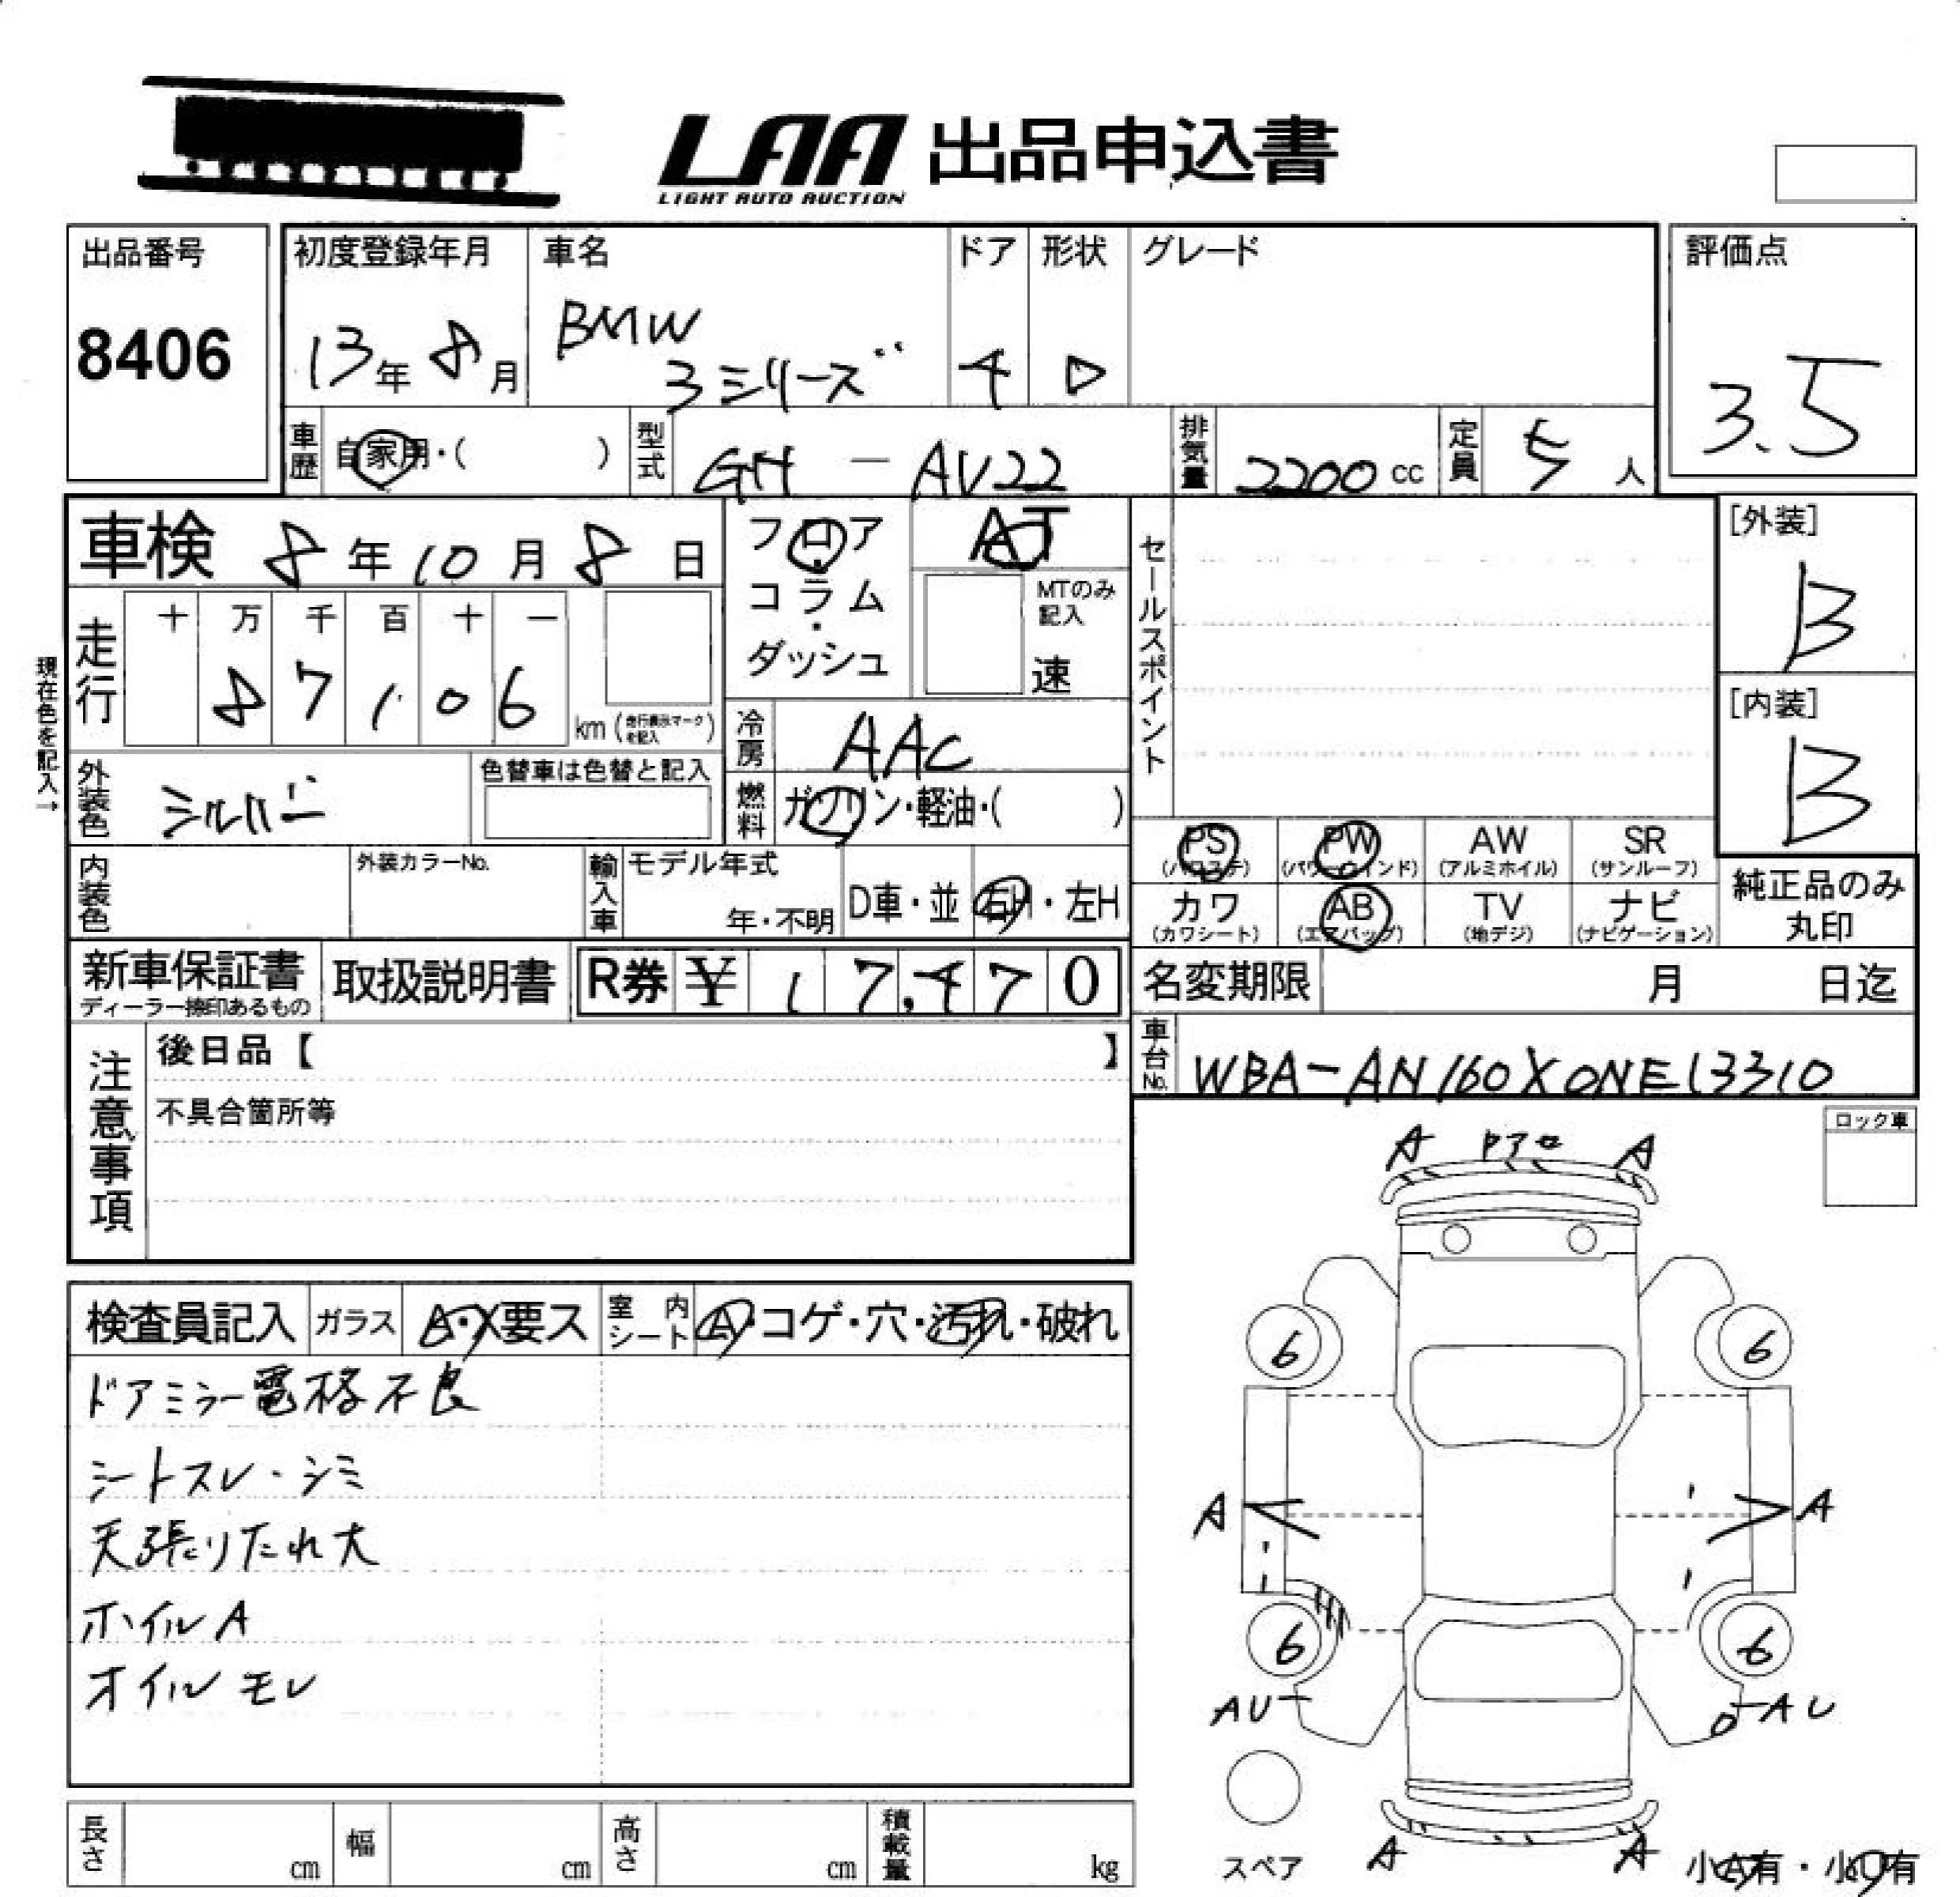 LAA 出品申込書
LIGHT AUTO AUCTION
出品番号
8406
初度登録年月
13年 8月
車名
BMW
3シリーズ
ドア
4
形状
D
グレード
評価点
3.5
車歴
自家用・( )
型式
GH - AV22
排気量
2200 cc
定員
5 人
車検 8年10月8日
フロア
・
コラム
・
ダッシュ
AT
MTのみ
記入
速
セールスポイント
[外装]
B
[内装]
B
現在色を記入→
走行
十 万 千 百 十 一
8 7 1 0 6
km (走行表示マークを記入)
冷房
AAC
外装色
シルバー
色替車は色替と記入
燃料
ガソリン・軽油・( )
内装色
外装カラーNo.
輸入車
モデル年式
年・不明
D車・並
右H・左H
PS
(パワステ)
PW
(パワーウインド)
AW
(アルミホイル)
SR
(サンルーフ)
カワ
(カワシート)
AB
(エアバッグ)
TV
(地デジ)
ナビ
(ナビゲーション)
純正品のみ
丸印
新車保証書
ディーラー捺印あるもの
取扱説明書
R券 ¥ 17,470
名変期限
月 日迄
車台No.
WBA-AN160X0NE13310
注意事項
後日品【 】
不具合箇所等
ロック車
検査員記入
ガラス
A・X要ス
室内
シート
A・コゲ・穴・汚れ・破れ
ドアミラー電格不良
シートスレ・シミ
天張りたれ大
ホイルA
オイルモレ
A A
6 6
A A
6 6
AU AU
A A
スペア
小A有・小U有
長さ
cm
幅
cm
高さ
cm
積載量
kg